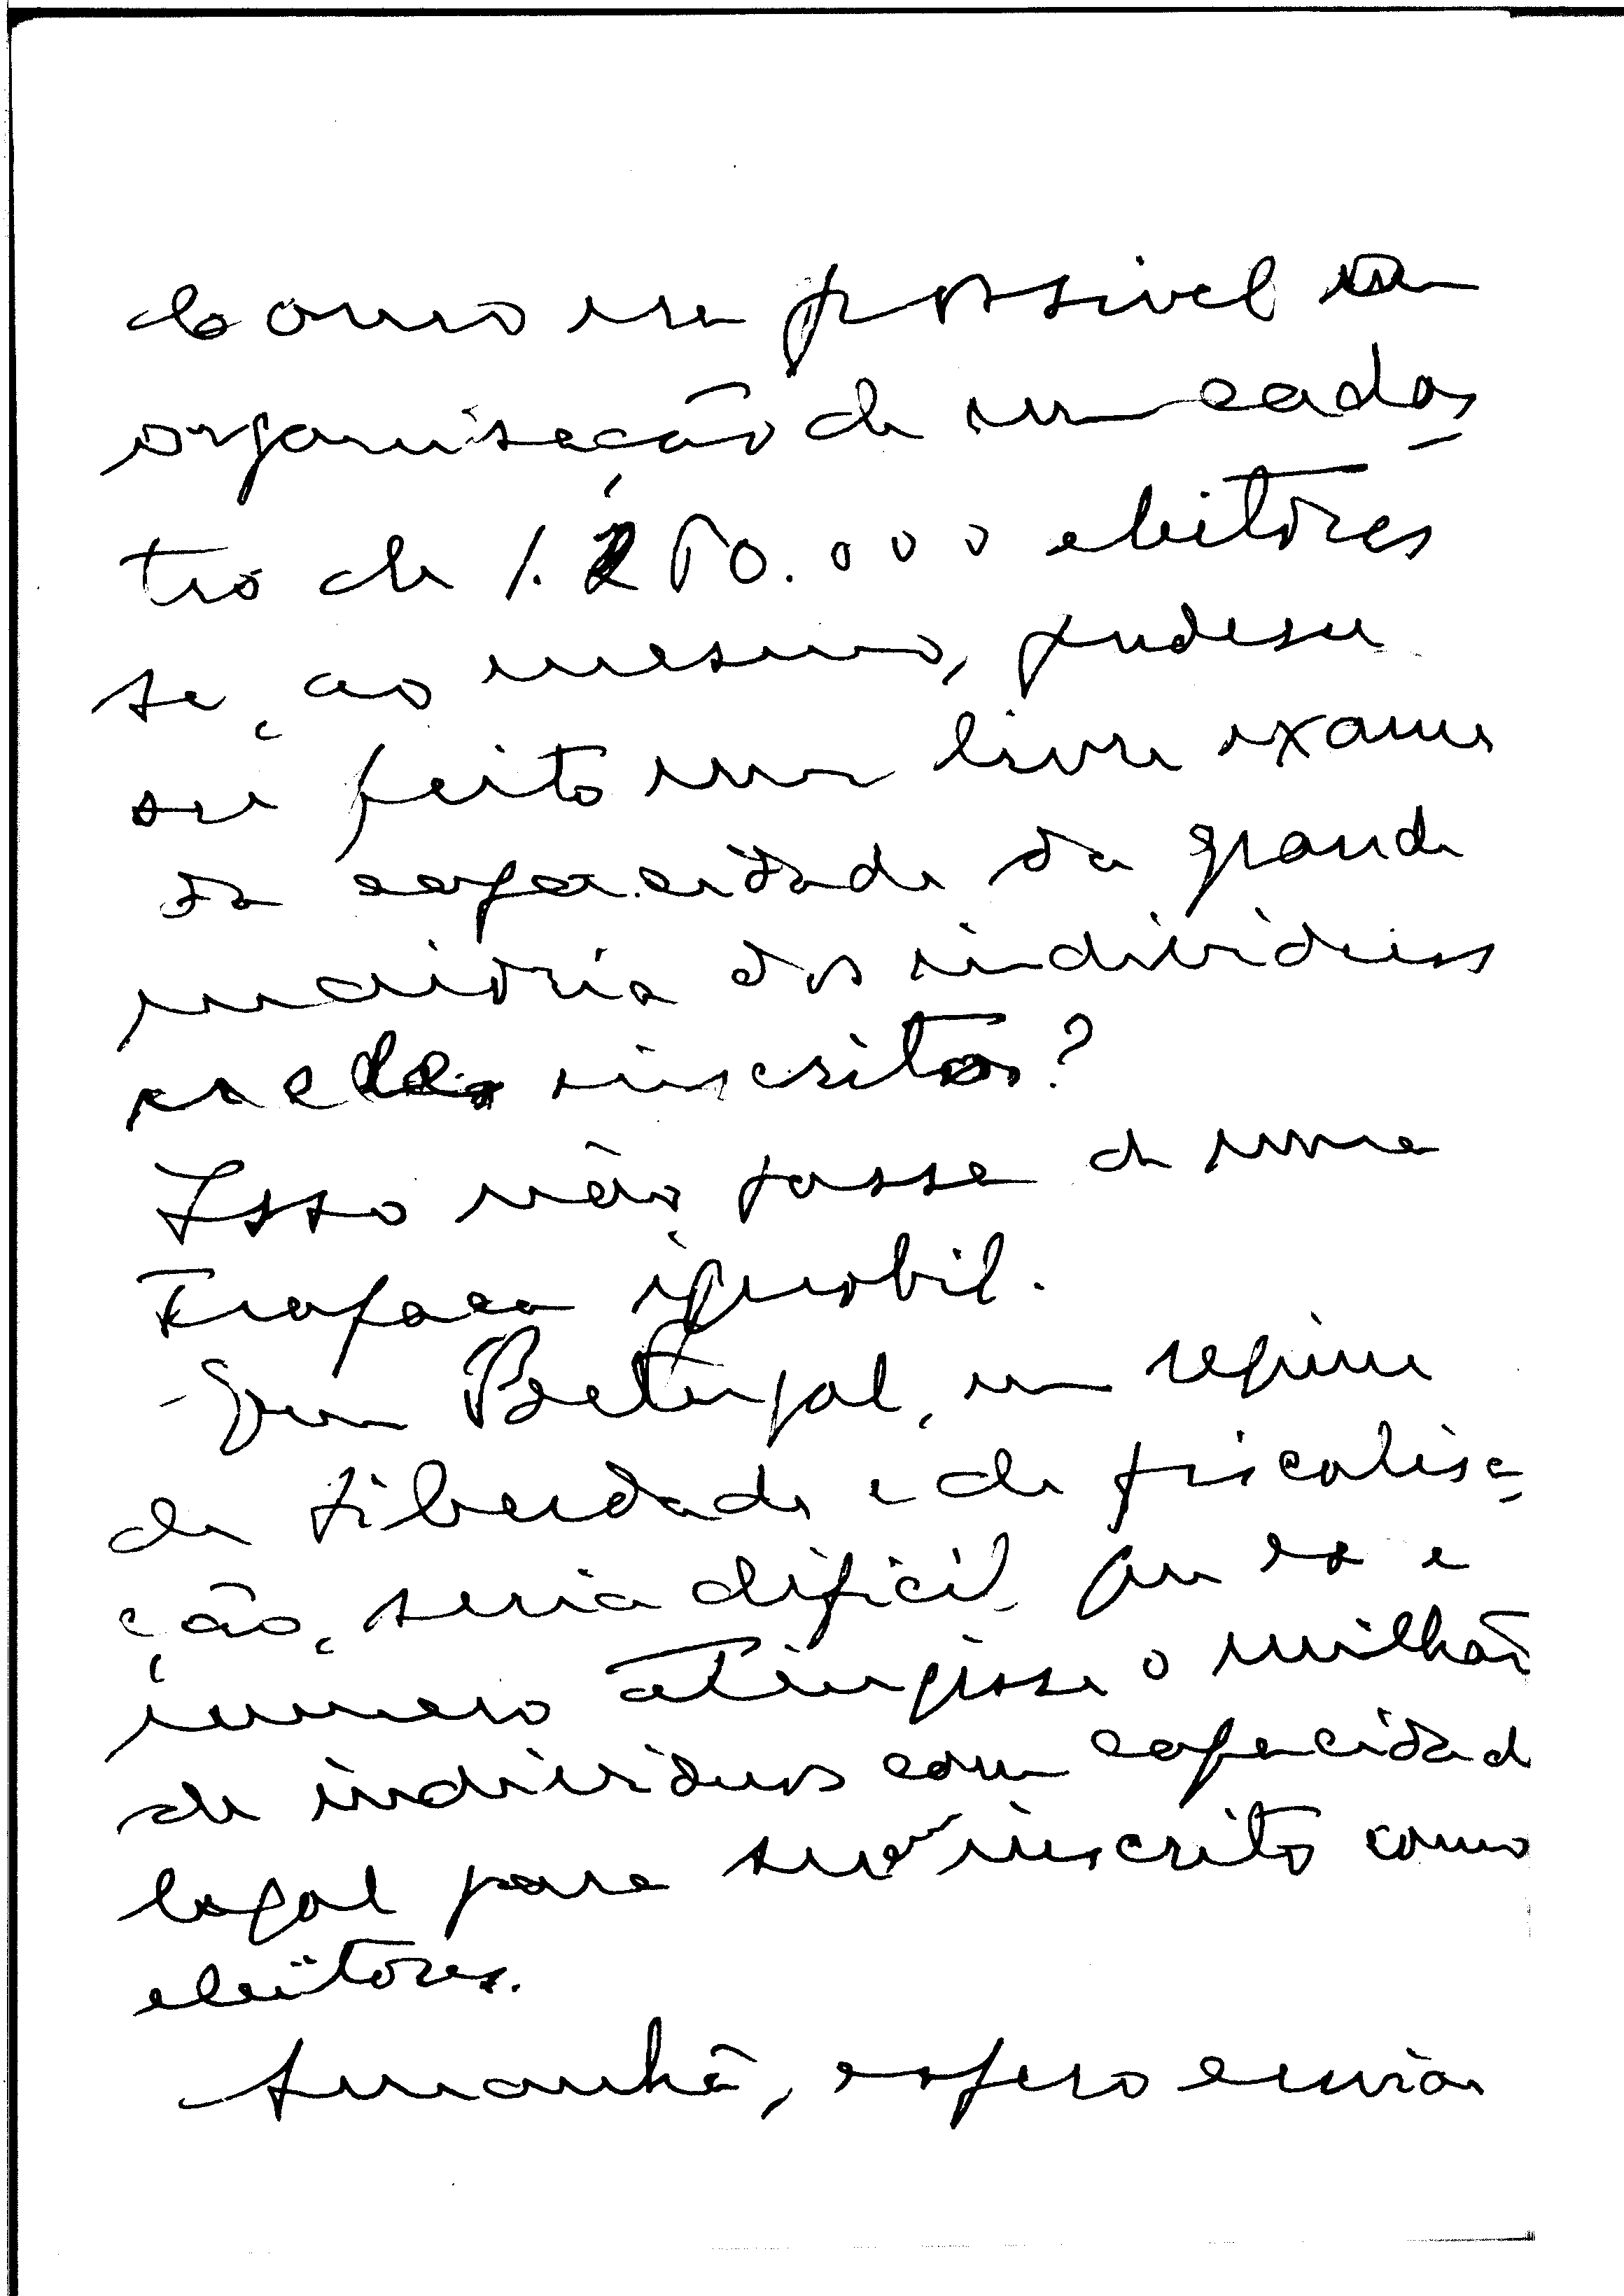 Como era possivel a
organisação de um cadas_
tro de 1.250.000 eleitores
se, ao mesmo, pudesse
ser feito um livre exame
da capacidade da grande
maioria dos individuos
nele inscritos?
Isso não passa de uma
trapaça ignobil.
Em Portugal, em regime
de liberdade e de fiscalisa_
ção, seria dificil que o
numero atingisse o milhão
de individuos com capacidad
legal para ser inscrito como
eleitores.
Amanhã, espero enviar